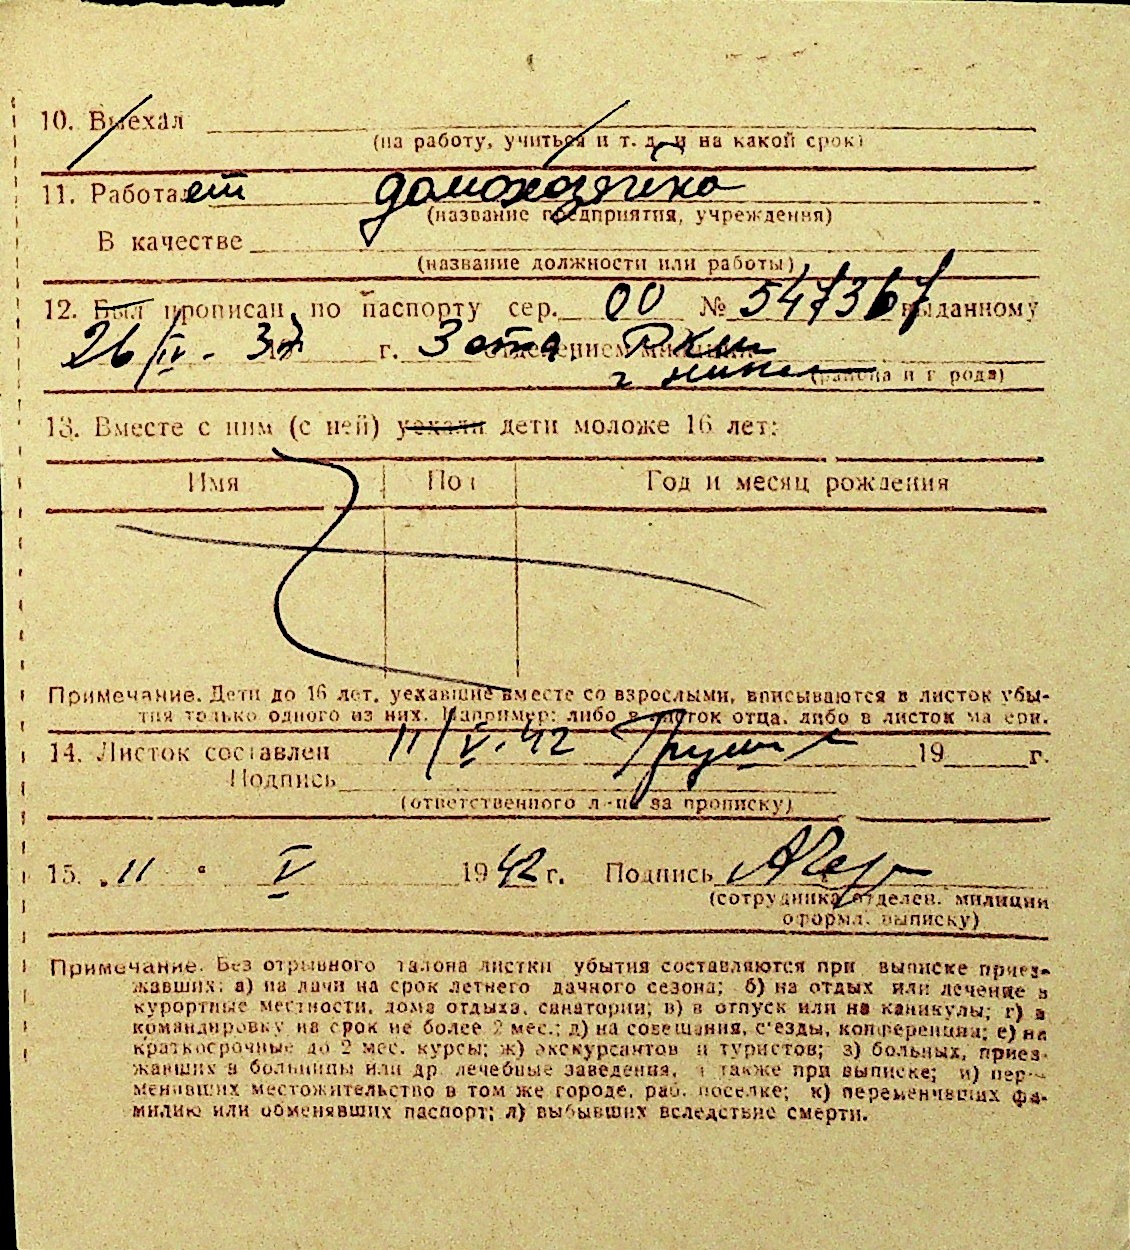 10. Выехал
(на работу, учиться и т. д. и на какой срок)
11. Работает домохозяйка
(название предприятия, учреждения)
В качестве
(название должности или работы)
12. Был прописан по паспорту сер. 00 № 547367 выданному
26/IV - 37 г. 3 отд. отделением милиции РКМ
г. (района и города)
13. Вместе с ним (с ней) уехали дети моложе 16 лет:
Имя Пол Год и месяц рождения
Примечание. Дети до 16 лет, уехавшие вместе со взрослыми, вписываются в листок убы-
тия только одного из них. Например: либо в листок отца, либо в листок матери.
14. Листок составлен 11/V-42 19 г.
Подпись
(ответственного л-ца за прописку)
15. „11 " V 1942 г. Подпись
(сотрудника отделен. милиции
оформл. выписку)
Примечание. Без отрывного талона листки убытия составляются при выписке приез-
жавших: а) на дачи на срок летнего дачного сезона; б) на отдых или лечение в
курортные местности, дома отдыха, санатории; в) в отпуск или на каникулы; г) в
командировку на срок не более 2 мес.; д) на совещания, с'езды, конференции; е) на
краткосрочные до 2 мес. курсы; ж) экскурсантов и туристов; з) больных, приез-
жавших в больницы или др лечебные заведения, а также при выписке; и) пере-
менивших местожительство в том же городе, раб. поселке; к) переменивших фа-
милию или обменявших паспорт; л) выбывших вследствие смерти.